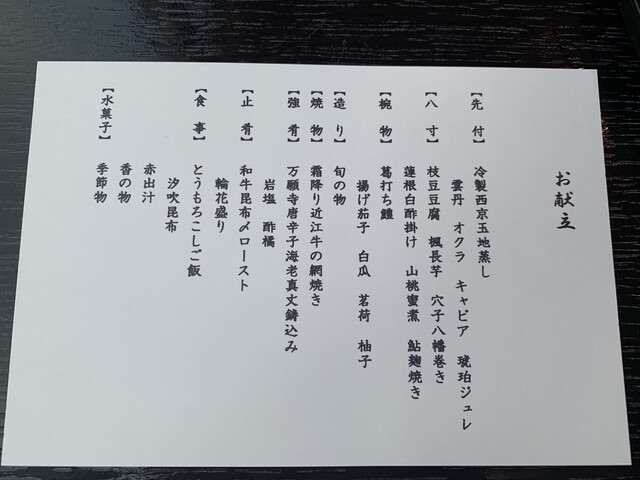 お献立
【先付】 冷製西京玉地蒸し
雲丹 オクラ キャビア 琥珀ジュレ
【八寸】 枝豆豆腐 楓長芋 穴子八幡巻き
蓮根白酢掛け 山桃蜜煮 鮎麹焼き
【椀物】 葛打ち鱧
揚げ茄子 白瓜 茗荷 柚子
【造り】 旬の物
【焼物】 霜降り近江牛の網焼き
【強肴】 万願寺唐辛子海老真丈鋳込み
岩塩 酢橘
【止肴】 和牛昆布〆ロースト
輪花盛り
【食事】 とうもろこしご飯
汐吹昆布
赤出汁
香の物
【水菓子】 季節物